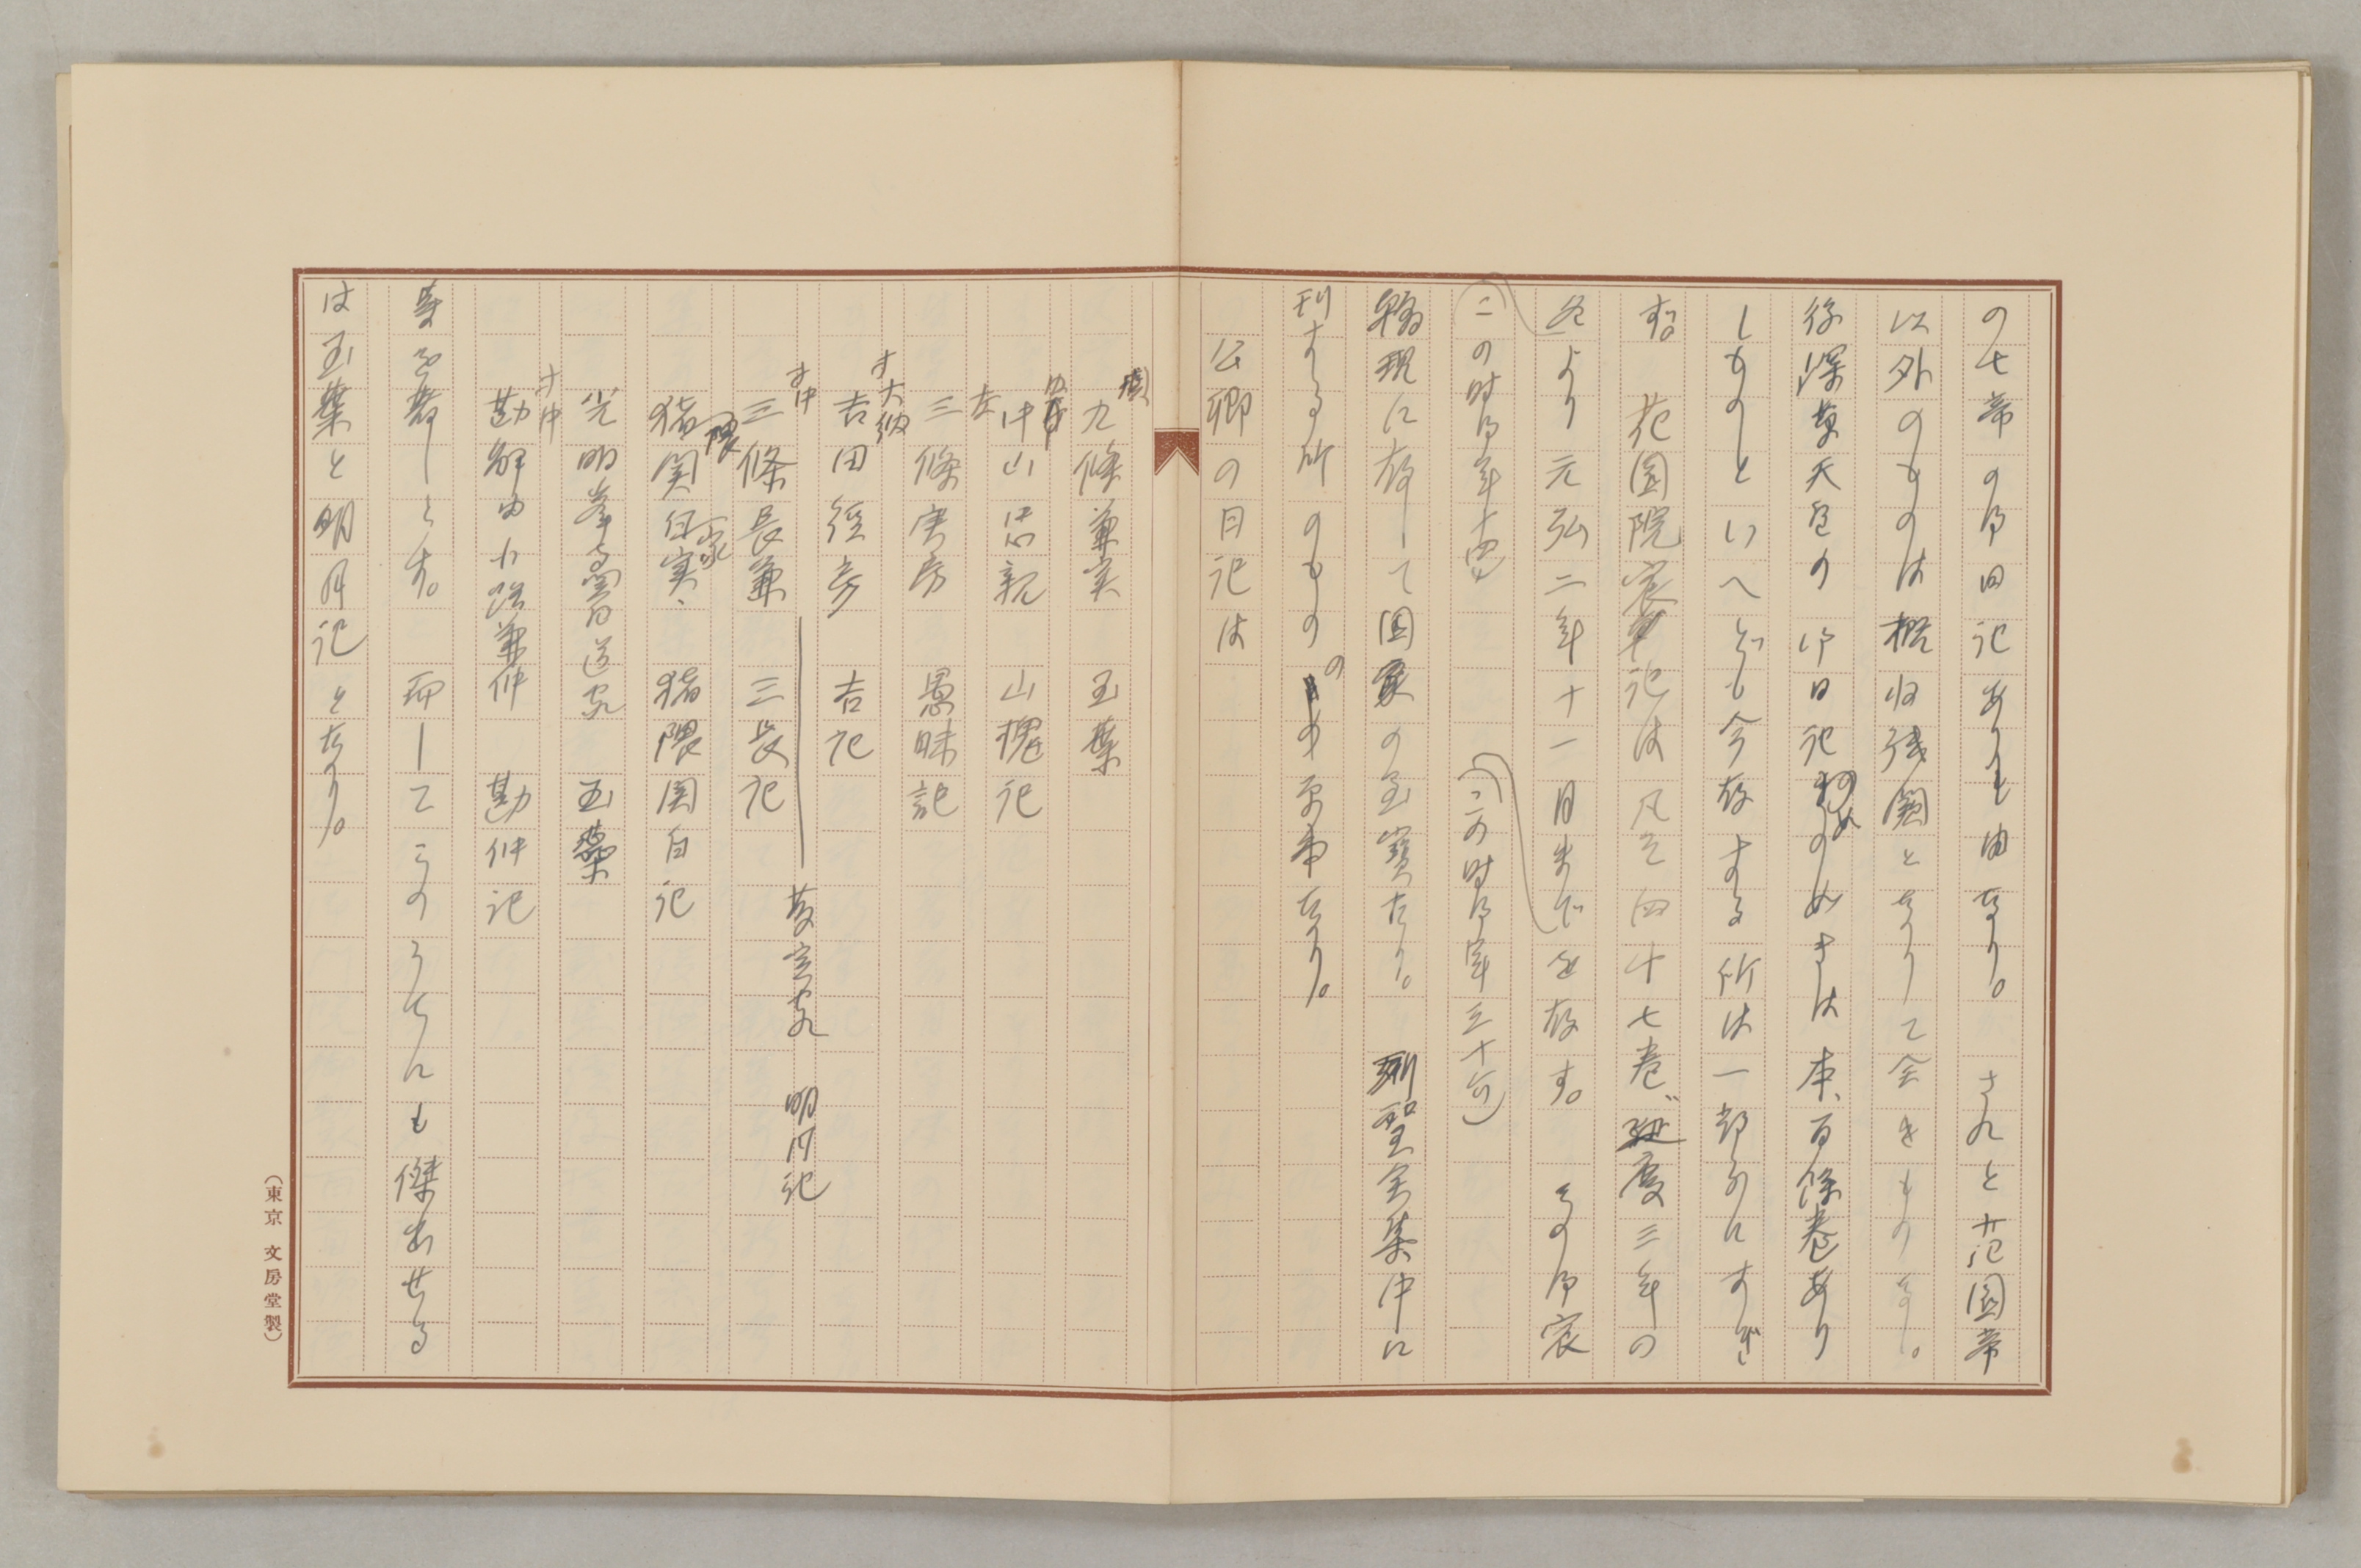 の七帝の御日記ありし由なり。されど花園帝
以外のものは概ね残闕となりて全きものなし。
後深草天皇の御日記の如きは本、百餘巻あり
しものといへども今存する所は一部分にすぎ
ず。花園院宸記は凡そ四十七巻、延慶三年の
冬より元弘二年十一月までを存す。その御宸
(この時御年十四)
(この時御年三十六)
翰現に存して国家の至寶たり。列聖全集中に
刊する所のもの
公卿の日記は
九條兼実 玉葉
中山忠親 山槐記
左
三條実房 愚昧記
大納
吉田経房 吉記
中
三條長兼 三長記
藤定家 明月記
猪隈関白家実、猪隈関白記
光明峯寺関白道家 玉蘂
中
勘解由小路兼仲 勘仲記
等を著しとす。而してこのうちにも傑出せる
は玉葉と明月記となり。
(東京 文房堂製)